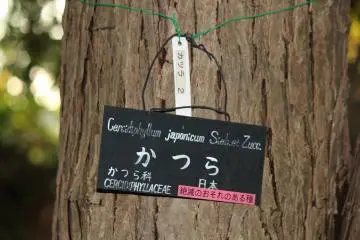 カツラ 2
Cercidiphyllum japonicum Sieb.et Zucc.
かつら
かつら科 日本
CERCIDIPHYLLACEAE
絶滅のおそれのある種